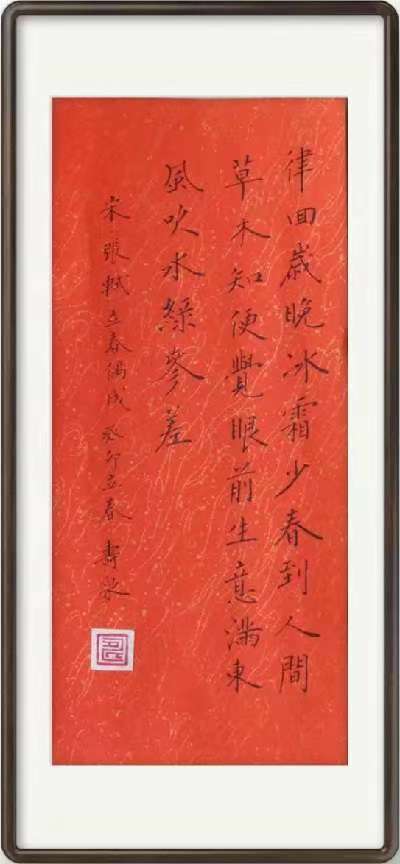 律回歲晚冰霜少春到人間
草木知便覺眼前生意滿東
風吹水綠參差
宋張栻立春偶成癸卯立春壽榮